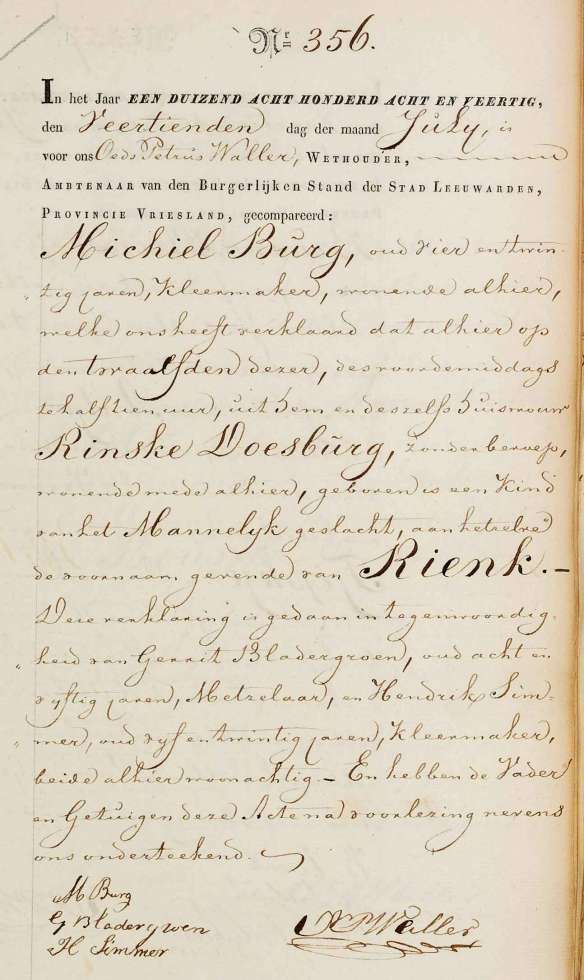 Nr 356.
In het Jaar EEN DUIZEND ACHT HONDERD ACHT EN VEERTIG,
den Veertienden dag der maand July, is
voor ons Oeds Petrus Waller, WETHOUDER,
AMBTENAAR van den Burgerlijken Stand der STAD LEEUWARDEN,
PROVINCIE VRIESLAND, gecompareerd:
Michiel Burg, oud vier en twin-
„tig jaren, Kleermaker, wonende alhier,
welke ons heeft verklaard dat alhier op
den twaalfden dezer, des voordemiddags
te half tien uur, uit hem en deszelfs huisvrouw
Rinske Doesburg, zonder beroep,
wonende mede alhier, geboren is een Kind
van het Mannelyk geslacht, aan hetzelve
de voornaam gevende van Rienk.-
Deze verklaring is gedaan in tegenwoordig-
„heid van Gerrit Bladergroen, oud acht en
vyftig jaren, Metzelaar, en Hendrik Sim-
„mer, oud vyf en twintig jaren, Kleermaker,
beide alhier woonachtig - En hebben de Vader
en Getuigen deze Acte na voorlezing nevens
ons onderteekend.
M Burg
G Bladergroen
H Simmer
OPWaller